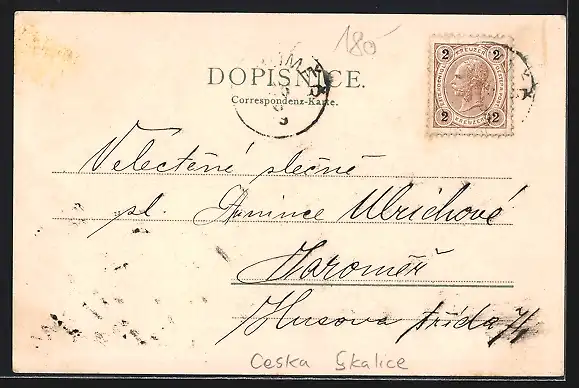 180
DOPISNICE.
Correspondenz-Karte.
2 KREUZER 2
2 KREUZER 2
Velectěné slečně
sl. Ulrichové
Jaroměř
Husova třída 71
Ceska Skalice